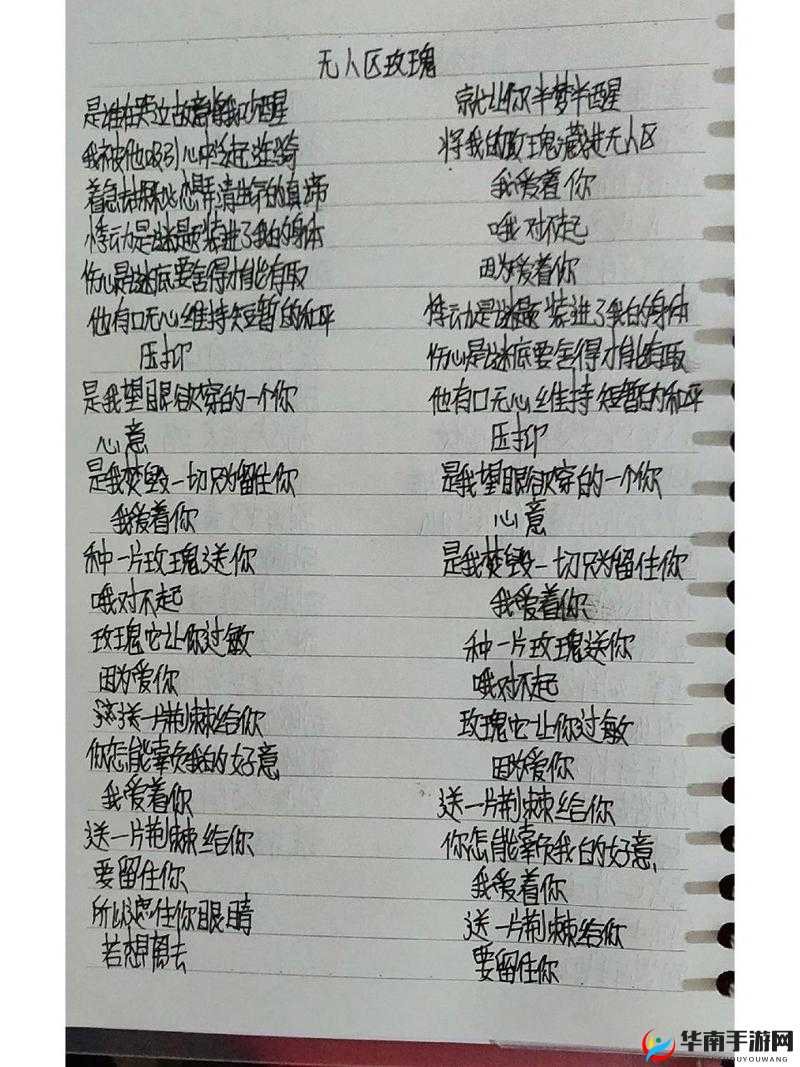 无人区玫瑰
是谁在旁边故意将我吵醒
我被他吸引心中泛起涟漪
着急去探秘想弄清生命的真谛
悸动是谜题装进了我的身体
伤心是谜底要舍得才能有取
他有口无心维持短暂的和平
压抑
是我望眼欲穿的一个你
心意
是我焚毁一切只为留住你
我爱着你
种一片玫瑰送你
哦对不起
玫瑰它让你过敏
因为爱你
送一片荆棘给你
你怎能辜负我的好意
我爱着你
送一片荆棘给你
要留住你
所以遮住你眼睛
若想离去
就让你半梦半醒
将我的玫瑰藏进无人区
我爱着你
哦对不起
因为爱着你
悸动是谜题装进了我的身体
伤心是谜底要舍得才能有取
他有口无心维持短暂的和平
压抑
是我望眼欲穿的一个你
心意
是我焚毁一切只为留住你
我爱着你
种一片玫瑰送你
哦对不起
玫瑰它让你过敏
因为爱你
送一片荆棘给你
你怎能辜负我的好意
我爱着你
送一片荆棘给你
要留住你
华南手游网
SHOUYOUWANG